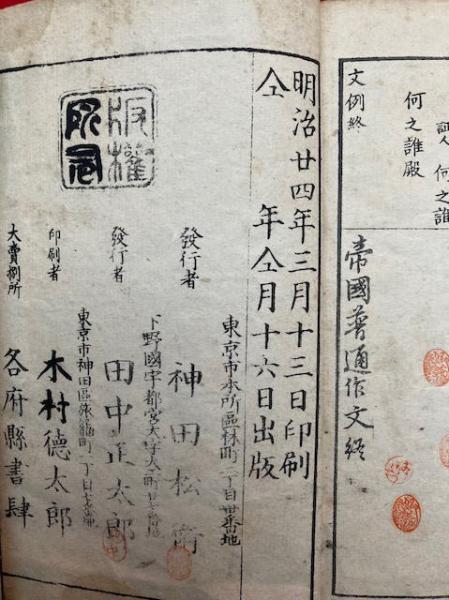 証人 何之誰
何之誰殿
文例終
帝國普通作文終
明治廿四年三月十三日印刷
仝 年仝月十六日出版
版權
所有
東京市本所區林町二丁目卅番地
發行者 神田松
下野國宇都宮大字大町番地
發行者 田中正太郎
東京市神田區旅籠町二丁目番地
印刷者 木村德太郎
大賣捌所 各府縣書肆